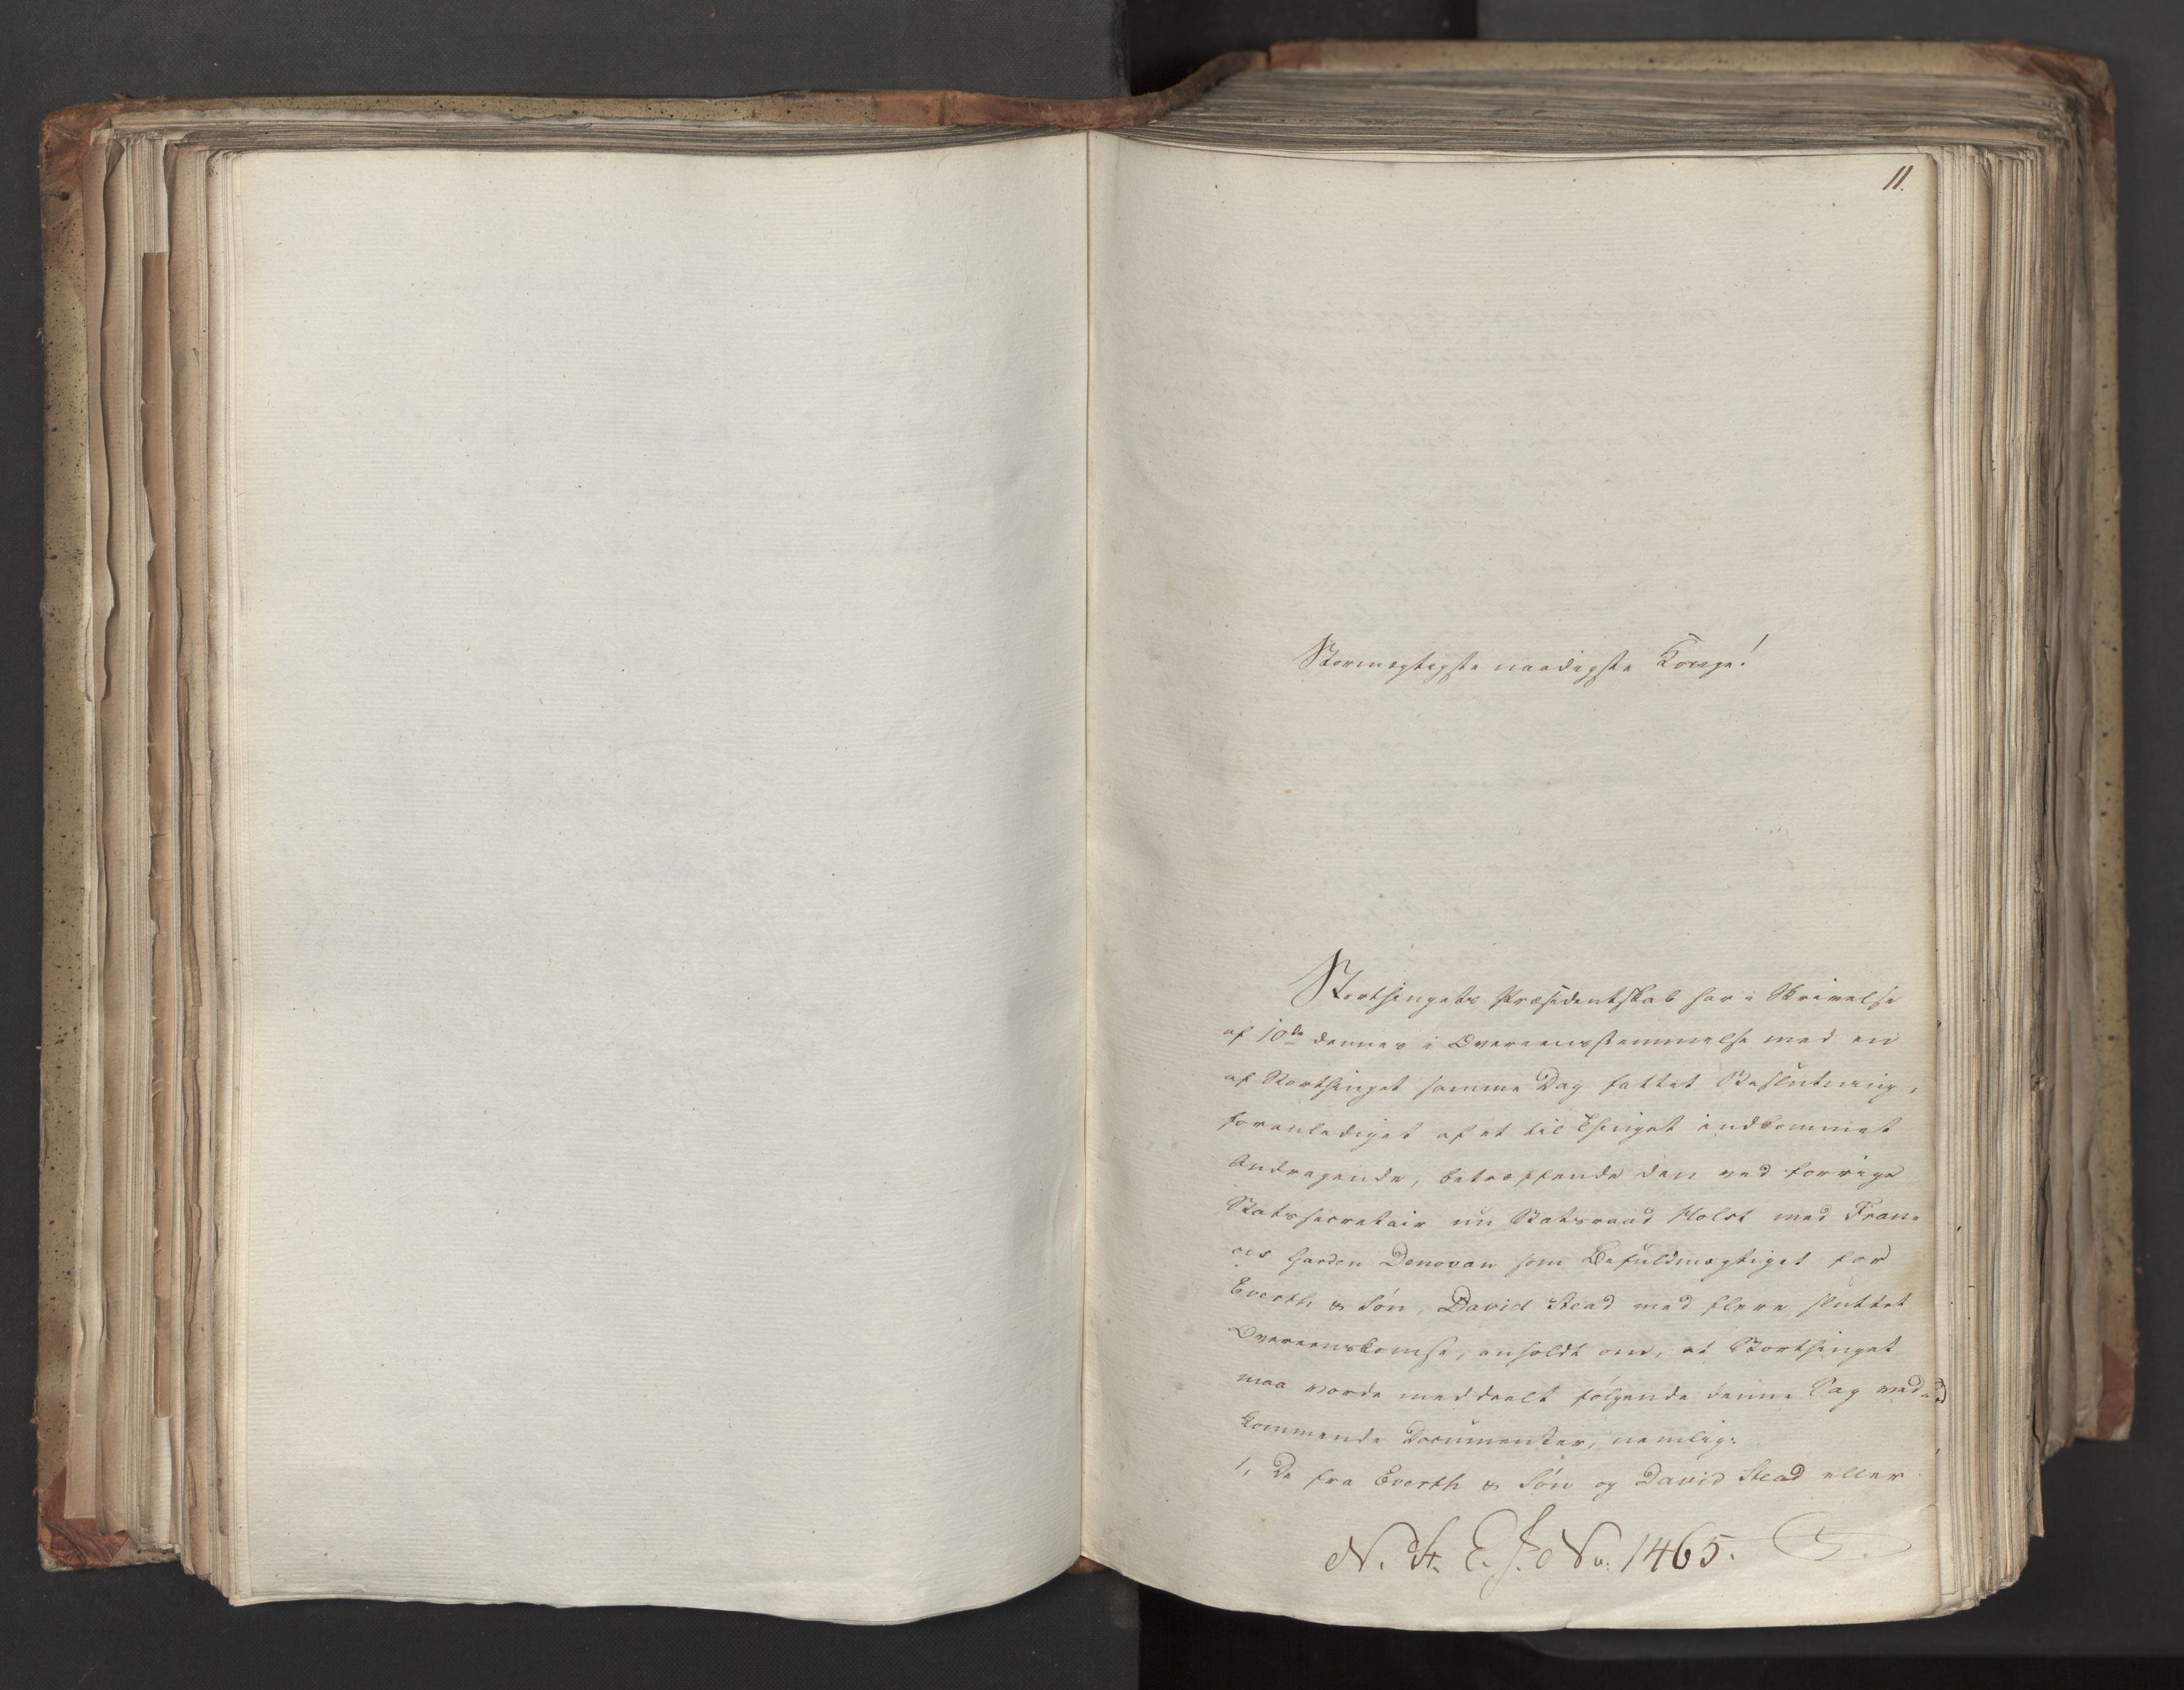 11.
Stormægtigste naadigste Konge!
Storthingets Præsidentskab har i Skrivelse
af 10de dennes i Overeensstemmelse med en
af Storthinget samme Dag fattet Beslutning,
foranlediget af et til Thinget indkommet
Andragende, betræffende den ved forrige
Statssecretair nu Statsraad Holst med Fran-
ces Garden Denovan som Befuldmægtiget for
Everth & Søn, David Stead med flere sluttet
Overeenskomst, anholdt om, at Storthinget
maa vorde meddeelt følgende denne Sag ved-
kommende Documenter, nemlig:
1, De fra Everth & Søn og David Stead eller
N. St. E. J. No: 1465.